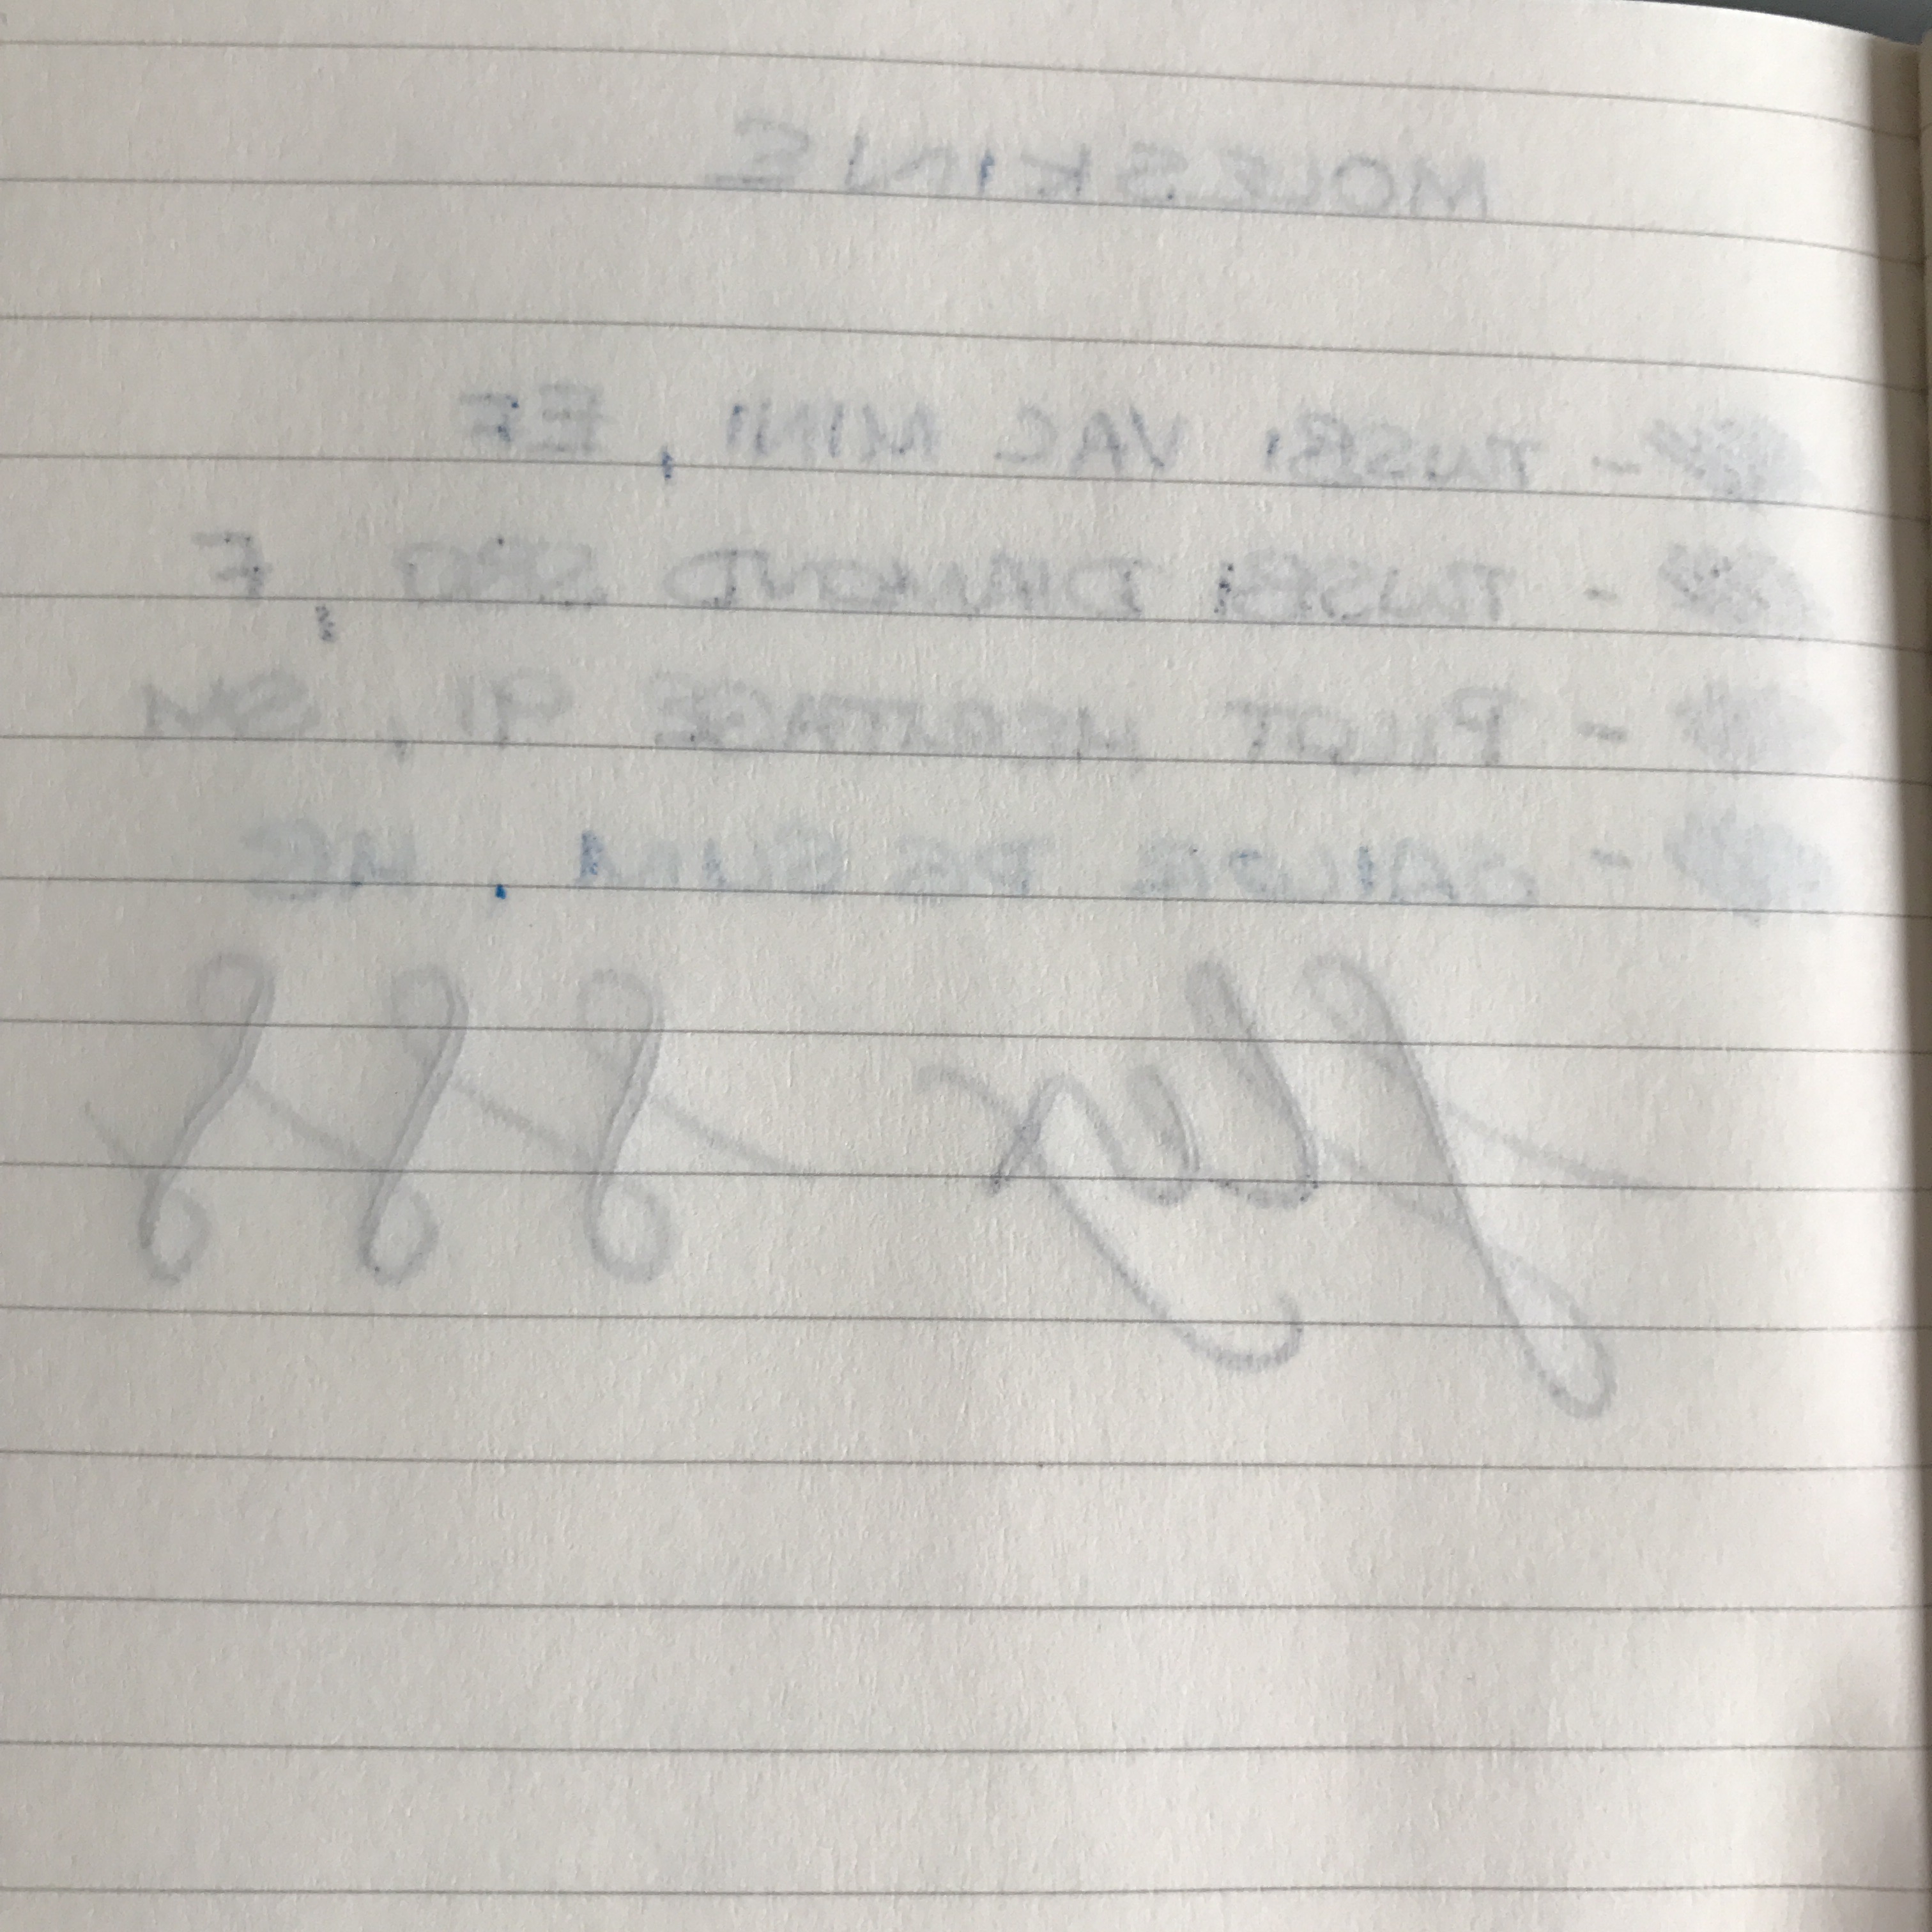 MOLESKINE
- TWSBI VAC MINI, EF
- TWSBI DIAMOND 580, F
- PILOT HERITAGE 91, SM
- SAILOR PG SLIM, MF
flex